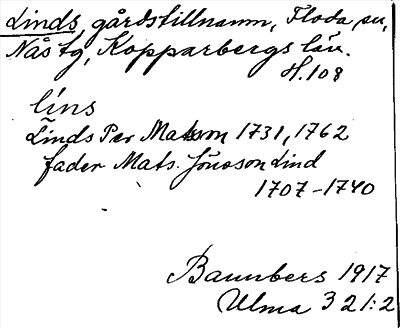 Linds, gårdstillnamn, Floda sn,
Nås tg, Kopparbergs län.
H.108
líns
Linds Per Matsson 1731, 1762
fader Mats. Jönsson Lind
1707-1740
Bannbers 1917
Ulma 321:2